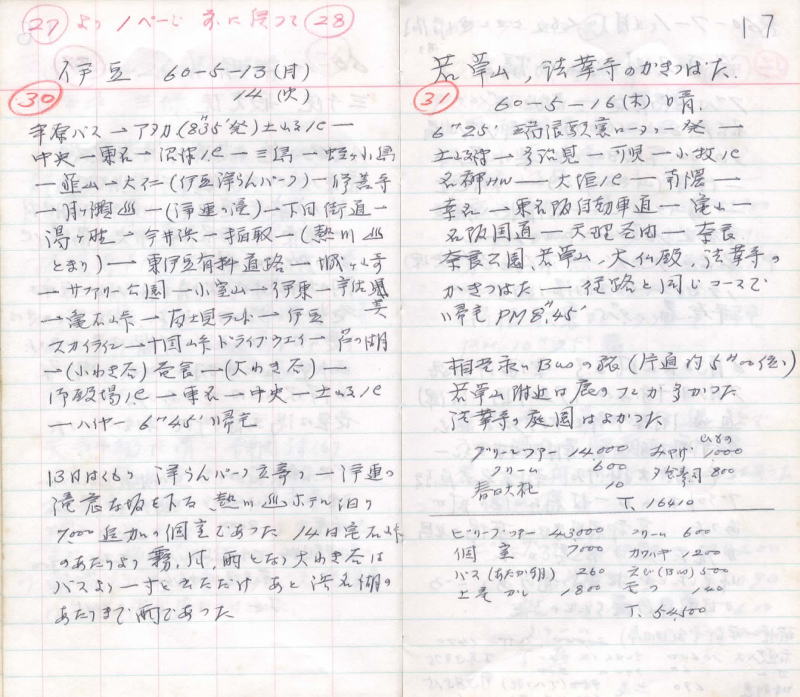 27 より 1ページ 前に侵つて 28
伊豆 60-5-13(月)
14(火)
30
バス→アタカ(8"35'発)土山IC→
中央→東名→沼津IC→三島→蛭ヶ小島
→韮山→大仁(伊豆洋らんパーク)→修善寺
→月ヶ瀬 →(浄蓮の滝)→下田街道→
湯ヶ野→今井浜→稲取→(熱川
とまり)→東伊豆有料道路→城ヶ崎
→サファリー公園→小室山→伊東→宇佐美
→亀石峠→ ランド→伊豆
スカイライン→十国峠ドライブウエイ→芦の湖
→(小わき谷)昼食→(大わき谷)→
御殿場IC→東名→中央→土 IC
→ハイヤー 6"45'帰宅
13日はくもり 洋らんパーク立寄り→浄蓮の
滝急な坂を下る 熱川 ホテル泊り
7000追加の個室であった 14日 石峠
のあたりより霧、風、雨となり大わき谷は
バスより一寸と出ただけ あと浜名湖の
あたりまで雨であった
17
若草山,法華寺のかきつばた.
31
60-5-16(木) 晴.
6"25' 発→
土岐 →多治見→可児→小牧IC
名神HW→大垣IC→南濃→
桑名→東名阪自動車道→亀山→
名阪国道→天理 →奈良
奈良公園、若草山、大仏殿、法華寺の
かきつばた→従路と同じコースで
帰宅 PM8"45'
相当永いBusの旅(片道約5"00位)
若草山附近は鹿のフンが多かつた
法華寺の庭園はよかつた
グリーンツアー 14,000 みやげ 1000
クリーム 600 夕食寿司 800
春日大社 10
T. 16410
ビーツアー 43,000 クリーム 600
個室 7000 カワハギ 1200
バス(あたか 明) 260 えび(Bw) 500
土産 かし 1800 モつ 140
T. 54500